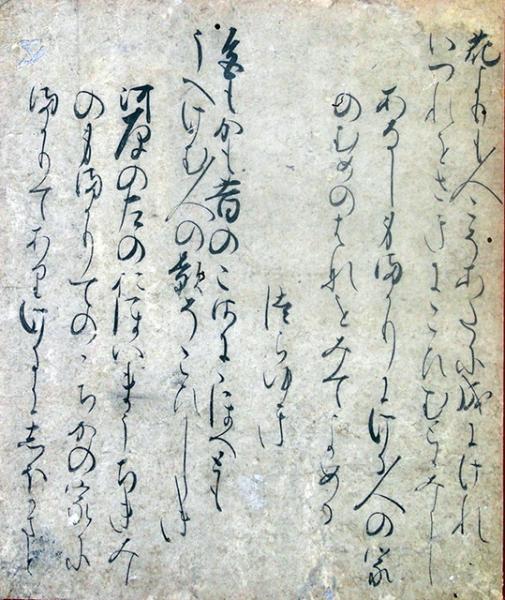 花よりも人こそあたに成にけれ
いつれをさきにこひむとかみし
あるし身まかりにける人の家
のむめのはなをみてよめる
つらゆき
色もかも昔のこさににほへとも
うへけむ人の影そこひしき
河原の左のおほいまうちきみ
の身まかりてのゝちかの家に
まかりてありけるにしほかまと